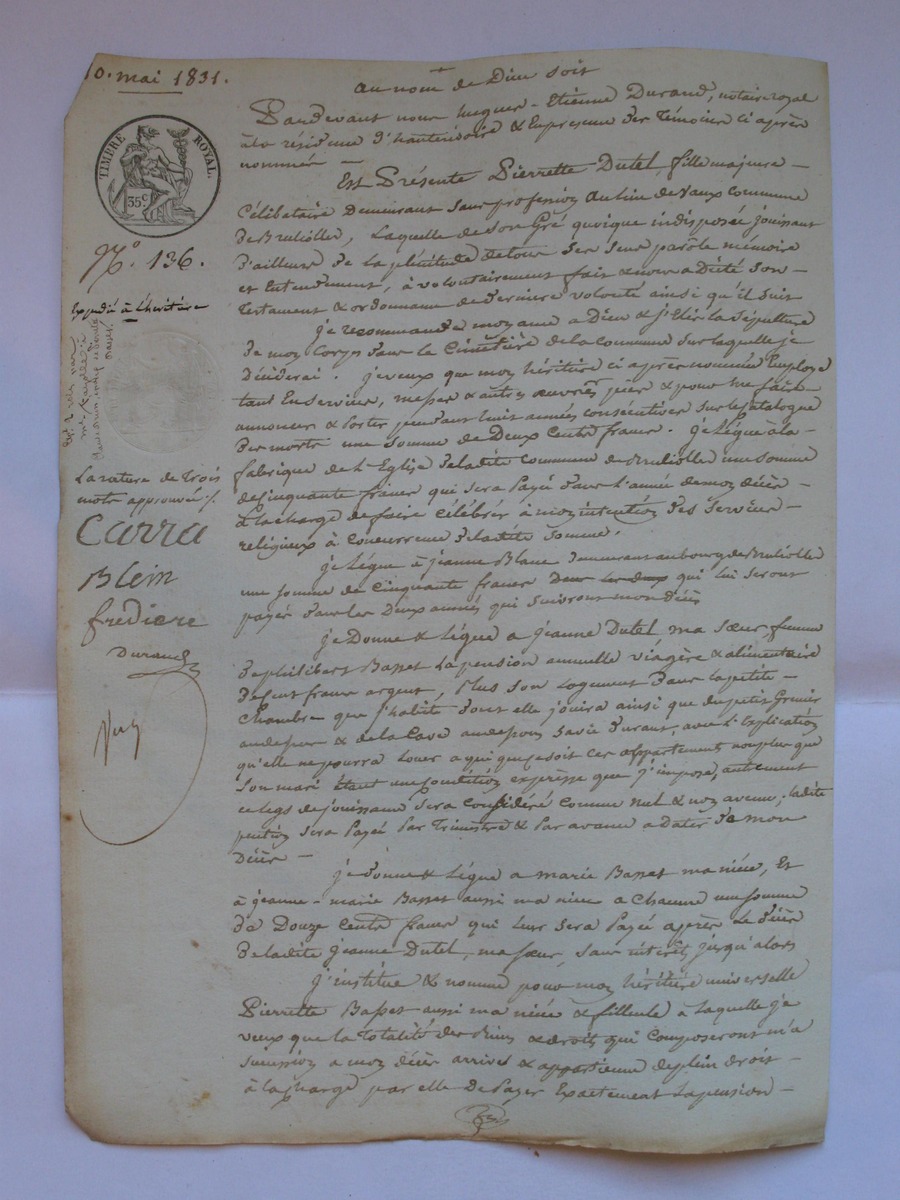 10. mai 1831.
TIMBRE ROYAL.
35c.
N°. 136.
Expédié à l'héritière
La rature de trois
mots approuvée ./.
Carra
Blein
fredière
Durand
au nom de Dieu soit
Pardevant nous hugues-Etienne Durand, notaire royal
à la résidence d'hauterivoire & En presence des Témoins ci après
nommés —
Est Présente Pierrette Dutel, fille majeure —
Célibataire demeurant sans profession au lieu de Vaux Commune
de Brullolles, Laquelle de son Gré quoique indisposée jouissant
d'ailleurs de la plénitude de tous ses sens parole mémoire
et Entendement, à volontairement fait & nous a Dicté Son —
Testament & ordonnance de derniere volonté ainsi qu'il suit
je recommande mon ame a Dieu & j'Elis la Sépulture
de mon Corps dans le Cimetière de la commune sur laquelle je
Décèderai. je veux que mon héritière ci après nommée Employe
tant En services, messes & autres œuvres pies & pour me faire
annoncer & porter pendant huit années consécutives sur le Catalogue
des morts une somme de Deux Cents francs. je Légue à la —
fabrique de l'Eglise de ladite Commune de Brullolle une somme
de Cinquante francs qui sera Payé dans l'année de mon décès —
à la charge de faire célébrer à mon intention des Services —
religieux à Concurrence de ladite somme.
je Légue à jeanne Blanc demeurant au bourg de Brullolle
une somme de Cinquante francs qui Lui seront
payés dans les Deux années qui suivront mon Décès
je Donne & Légue a jeanne Dutel ma sœur, femme
de philibert Basset La pension annuelle viagère & alimentaire
de Cent francs argent, Plus son Logement dans la petite —
Chambre que j'habite dont elle jouira ainsi que du petit Grenier
au dessus & de la Cave au dessous sa vie Durant, avec l'Explication
qu'elle ne pourra Louer a qui que ce soit ces appartements non plus que
son mari Etant une Condition expresse que j'impose, autrement
ce legs de jouissance sera Considéré comme nul & non avenu; ladite
pention sera Payée Par Trimestre & Par avance a Dater de mon
Décès —
je donne & Légue a marie Basset ma niéce, Et
à jeanne-marie Basset aussi ma niece a Chacune une somme
de Douze Cents francs qui leur sera Payé après le Décès
de ladite jeanne Dutel, ma sœur, sans intérêt jusqu'alors
j'institue & nomme pour mon héritière universelle
Pierrette Basset aussi ma niéce & filleule a Laquelle je
veux que la Totalité des Biens & droits qui Composeront ma
succession a mon décès arrive & appartienne de plein droit —
à la charge par elle De Payer Exactement La pension —